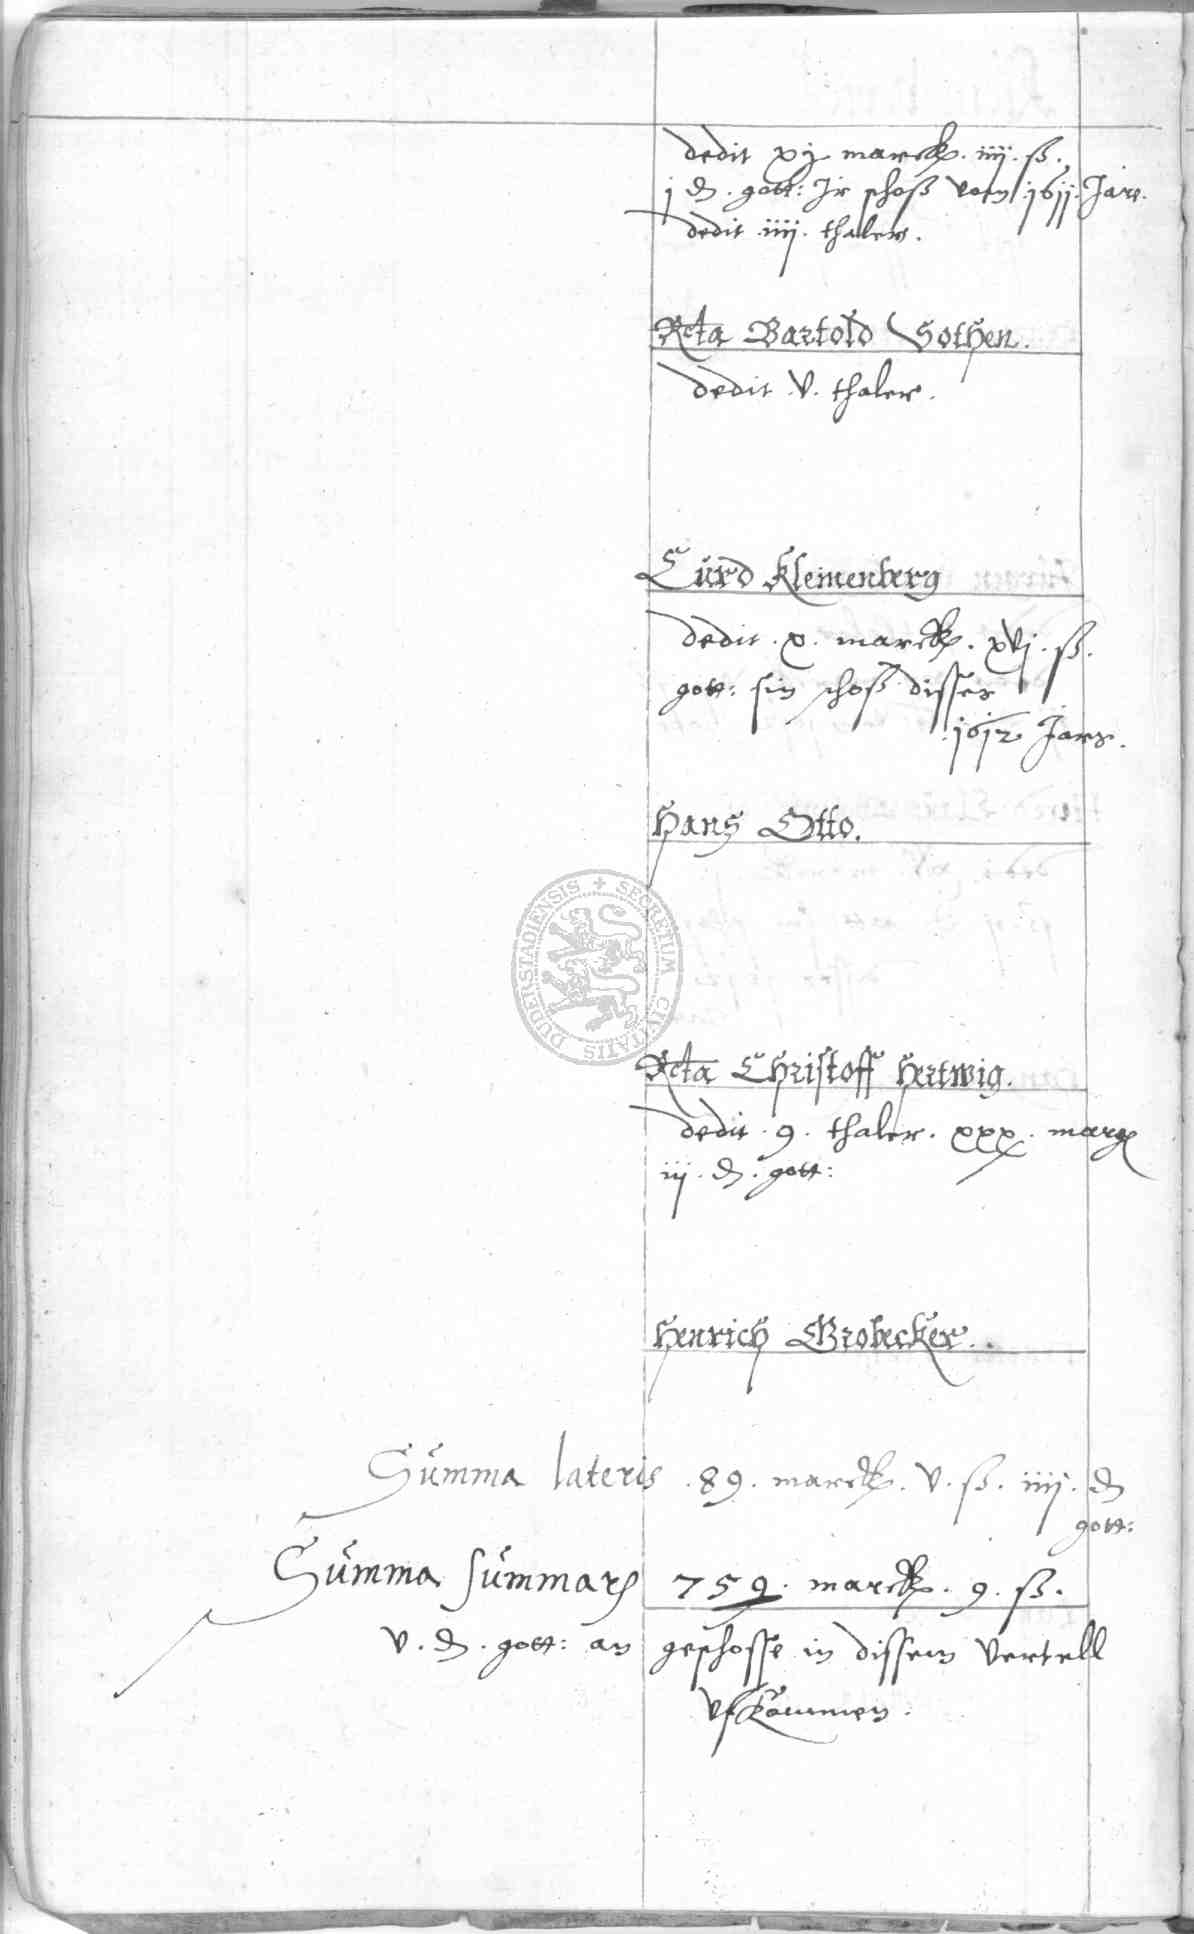 dedit xj marck. iiij. ß.
j d. gott: Ir schoß vom 1611. Jars.
dedit iiij. thaler.
Rcta Bartold Sothen.
dedit .V. thaler.
Curd Kleinenberg
dedit . x. marck. xvj. ß.
gott: sin schoß disses
.1612 Jars.
Hans Otto.
SECRETUM CIVITATIS DUDERSTADIENSIS
Rcta Christoff Hertwig.
dedit . 9 . thaler. xxx. marck
iij. d. gott:
Henrich Grobecker.
Summa lateris .89. marck. V. ß. iiij. d
gott:
Summa summar 759. marck. 9. ß.
V. d. gott: an geschosse in dissem Vertell
Vfkommen.